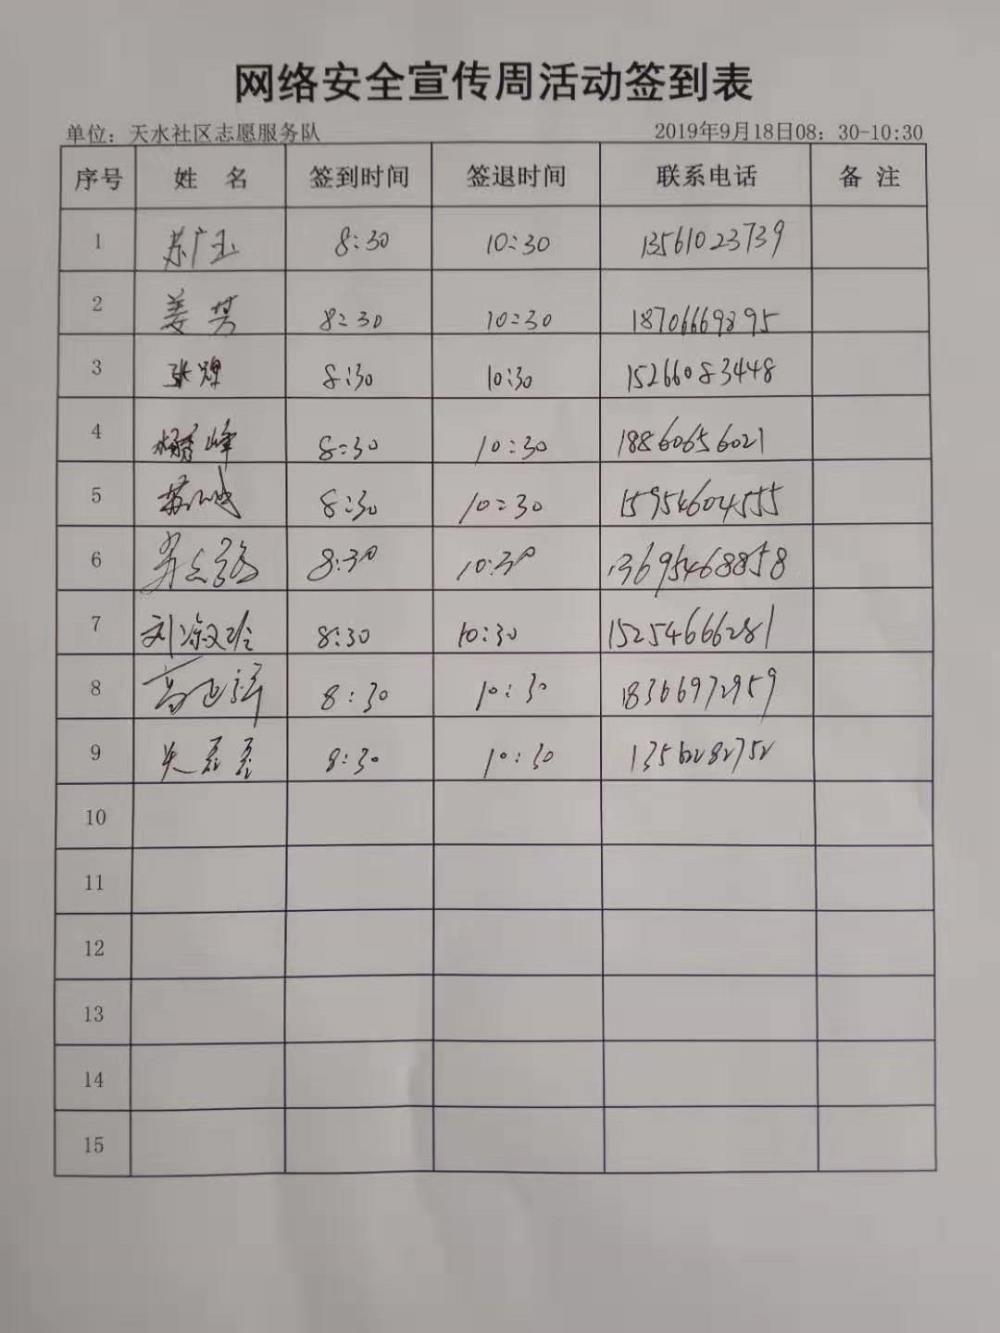 网络安全宣传周活动签到表
单位：天水社区志愿服务队 2019年9月18日08：30-10:30
序号 姓 名 签到时间 签退时间 联系电话 备 注
1 苏广玉 8:30 10:30 13561023739
2 姜 8:30 10:30 18706669295
3 张煌 8:30 10:30 15266083448
4 杨峰 8:30 10:30 18860656021
5 苏 8:30 10:30 15954604555
6 8:30 10:30 13695468858
7 刘 8:30 10:30 15254666281
8 高 8:30 10:30 18366972959
9 磊磊 8:30 10:30
10
11
12
13
14
15